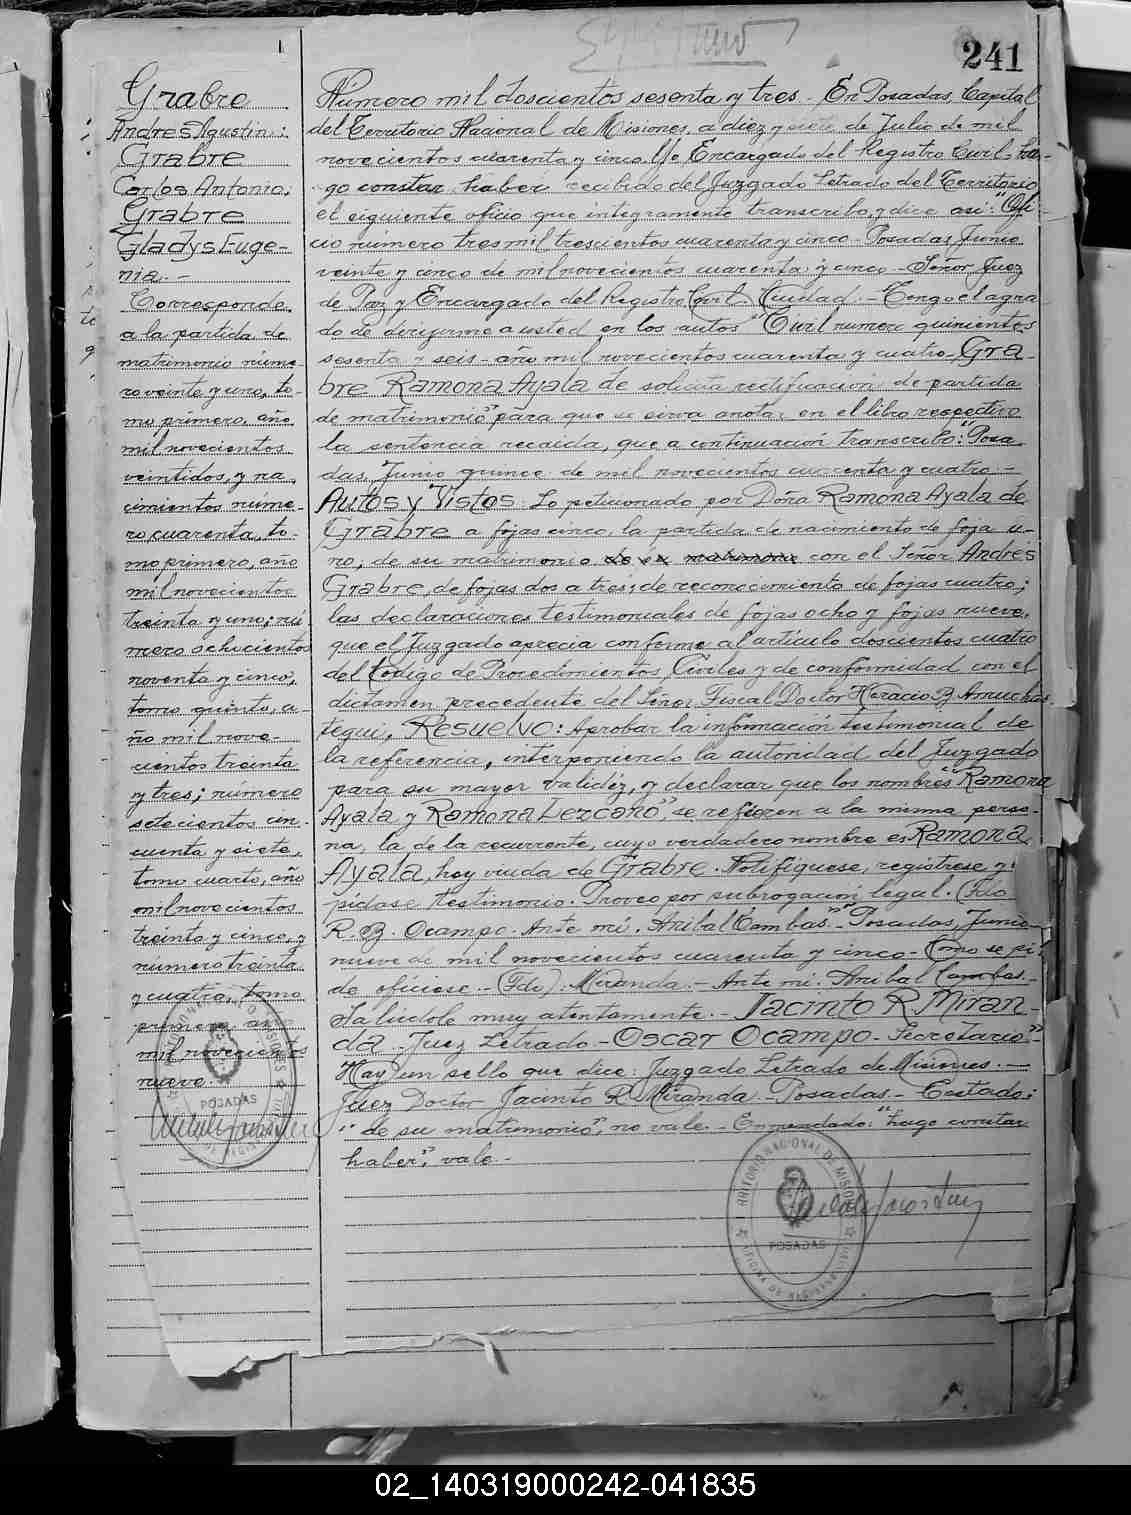 241
Grabre
Andres Agustin:
Grabre
Carlos Antonio.
Grabre
Gladys Euge-
nia.-
Corresponde
a la partida de
matrimonio núme-
ro veinte y uno, to-
mo primero, año
mil novecientos
veintidos, y na
cimientos núme-
ro cuarenta, to-
mo primero, año
mil novecientos
treinta y uno; nú-
mero ochocientos
noventa y cinco,
tomo quinto, a-
ño mil nove-
cientos treinta
y tres; número
setecientos cin-
cuenta y siete,
tomo cuarto, año
mil novecientos
treinta y cinco, y
número treinta
y cuatro, tomo
primero, año
mil novecientos
nueve.
Número mil doscientos sesenta y tres.- En Posadas, Capital
del Territorio Nacional de Misiones, a diez y siete de Julio de mil
novecientos cuarenta y cinco. Yo Encargado del Registro Civil, ha-
go constar haber recibido del Juzgado Letrado del Territorio
el siguiente oficio que integramente transcribo, y dice asi: "Ofi-
cio número tres mil trescientos cuarenta y cinco - Posadas, Junio
veinte y cinco de mil novecientos cuarenta y cinco.- Señor Juez
de Paz y Encargado del Registro Civil. Ciudad.- Tengo el agra
do de dirigirme a usted en los autos "Civil numero quinientos
sesenta y seis - año mil novecientos cuarenta y cuatro - Gra-
bre Ramona Ayala de solicita rectificación de partida
de matrimonio" para que se sirva anotar en el libro respectivo
la sentencia recaida, que a continuación transcribo: "Posa
das, Junio quince de mil novecientos cuarenta y cuatro.-
Autos y Vistos: Lo peticionado por Doña Ramona Ayala de
Grabre a fojas cinco, la partida de nacimiento de foja u-
no, de su matrimonio de su matrimonio con el Señor Andrés
Grabre, de fojas dos a tres; de reconocimiento de fojas cuatro;
las declaraciones testimoniales de fojas ocho y fojas nueve,
que el Juzgado aprecia conforme al artículo doscientos cuatro
del Código de Procedimientos Civiles y de conformidad con el
dictamen precedente del Señor Fiscal Doctor Horacio B. Amuchás
tegui, Resuelvo: Aprobar la información testimonial de
la referencia, interponiendo la autoridad del Juzgado
para su mayor validéz, y declarar que los nombres "Ramona
Ayala y Ramona Lezcano", se refieren a la misma perso-
na, la de la recurrente, cuyo verdadero nombre es Ramona
Ayala, hoy viuda de Grabre. Notifíquese, regístrese y
pídase testimonio. Proveo por subrogación legal. (Fdo
R. B. Ocampo. Ante mi. Anibal Cambas." "Posadas, Junio
nueve de mil novecientos cuarenta y cinco - Como se pi
de ofíciese.- (Fdo). Miranda.- Ante mi: Anibal Cambas.-
Salúdole muy atentamente.- Jacinto R Miran-
da - Juez Letrado - Oscar Ocampo - Secretario."
Hay un sello que dice: Juzgado Letrado de Misiones.-
Juez Doctor Jacinto R. Miranda.- Posadas.- Testado:
"de su matrimonio", no vale.- Enmendado: "hago constar
haber", vale.-
POSADAS
POSADAS
02_140319000242-041835